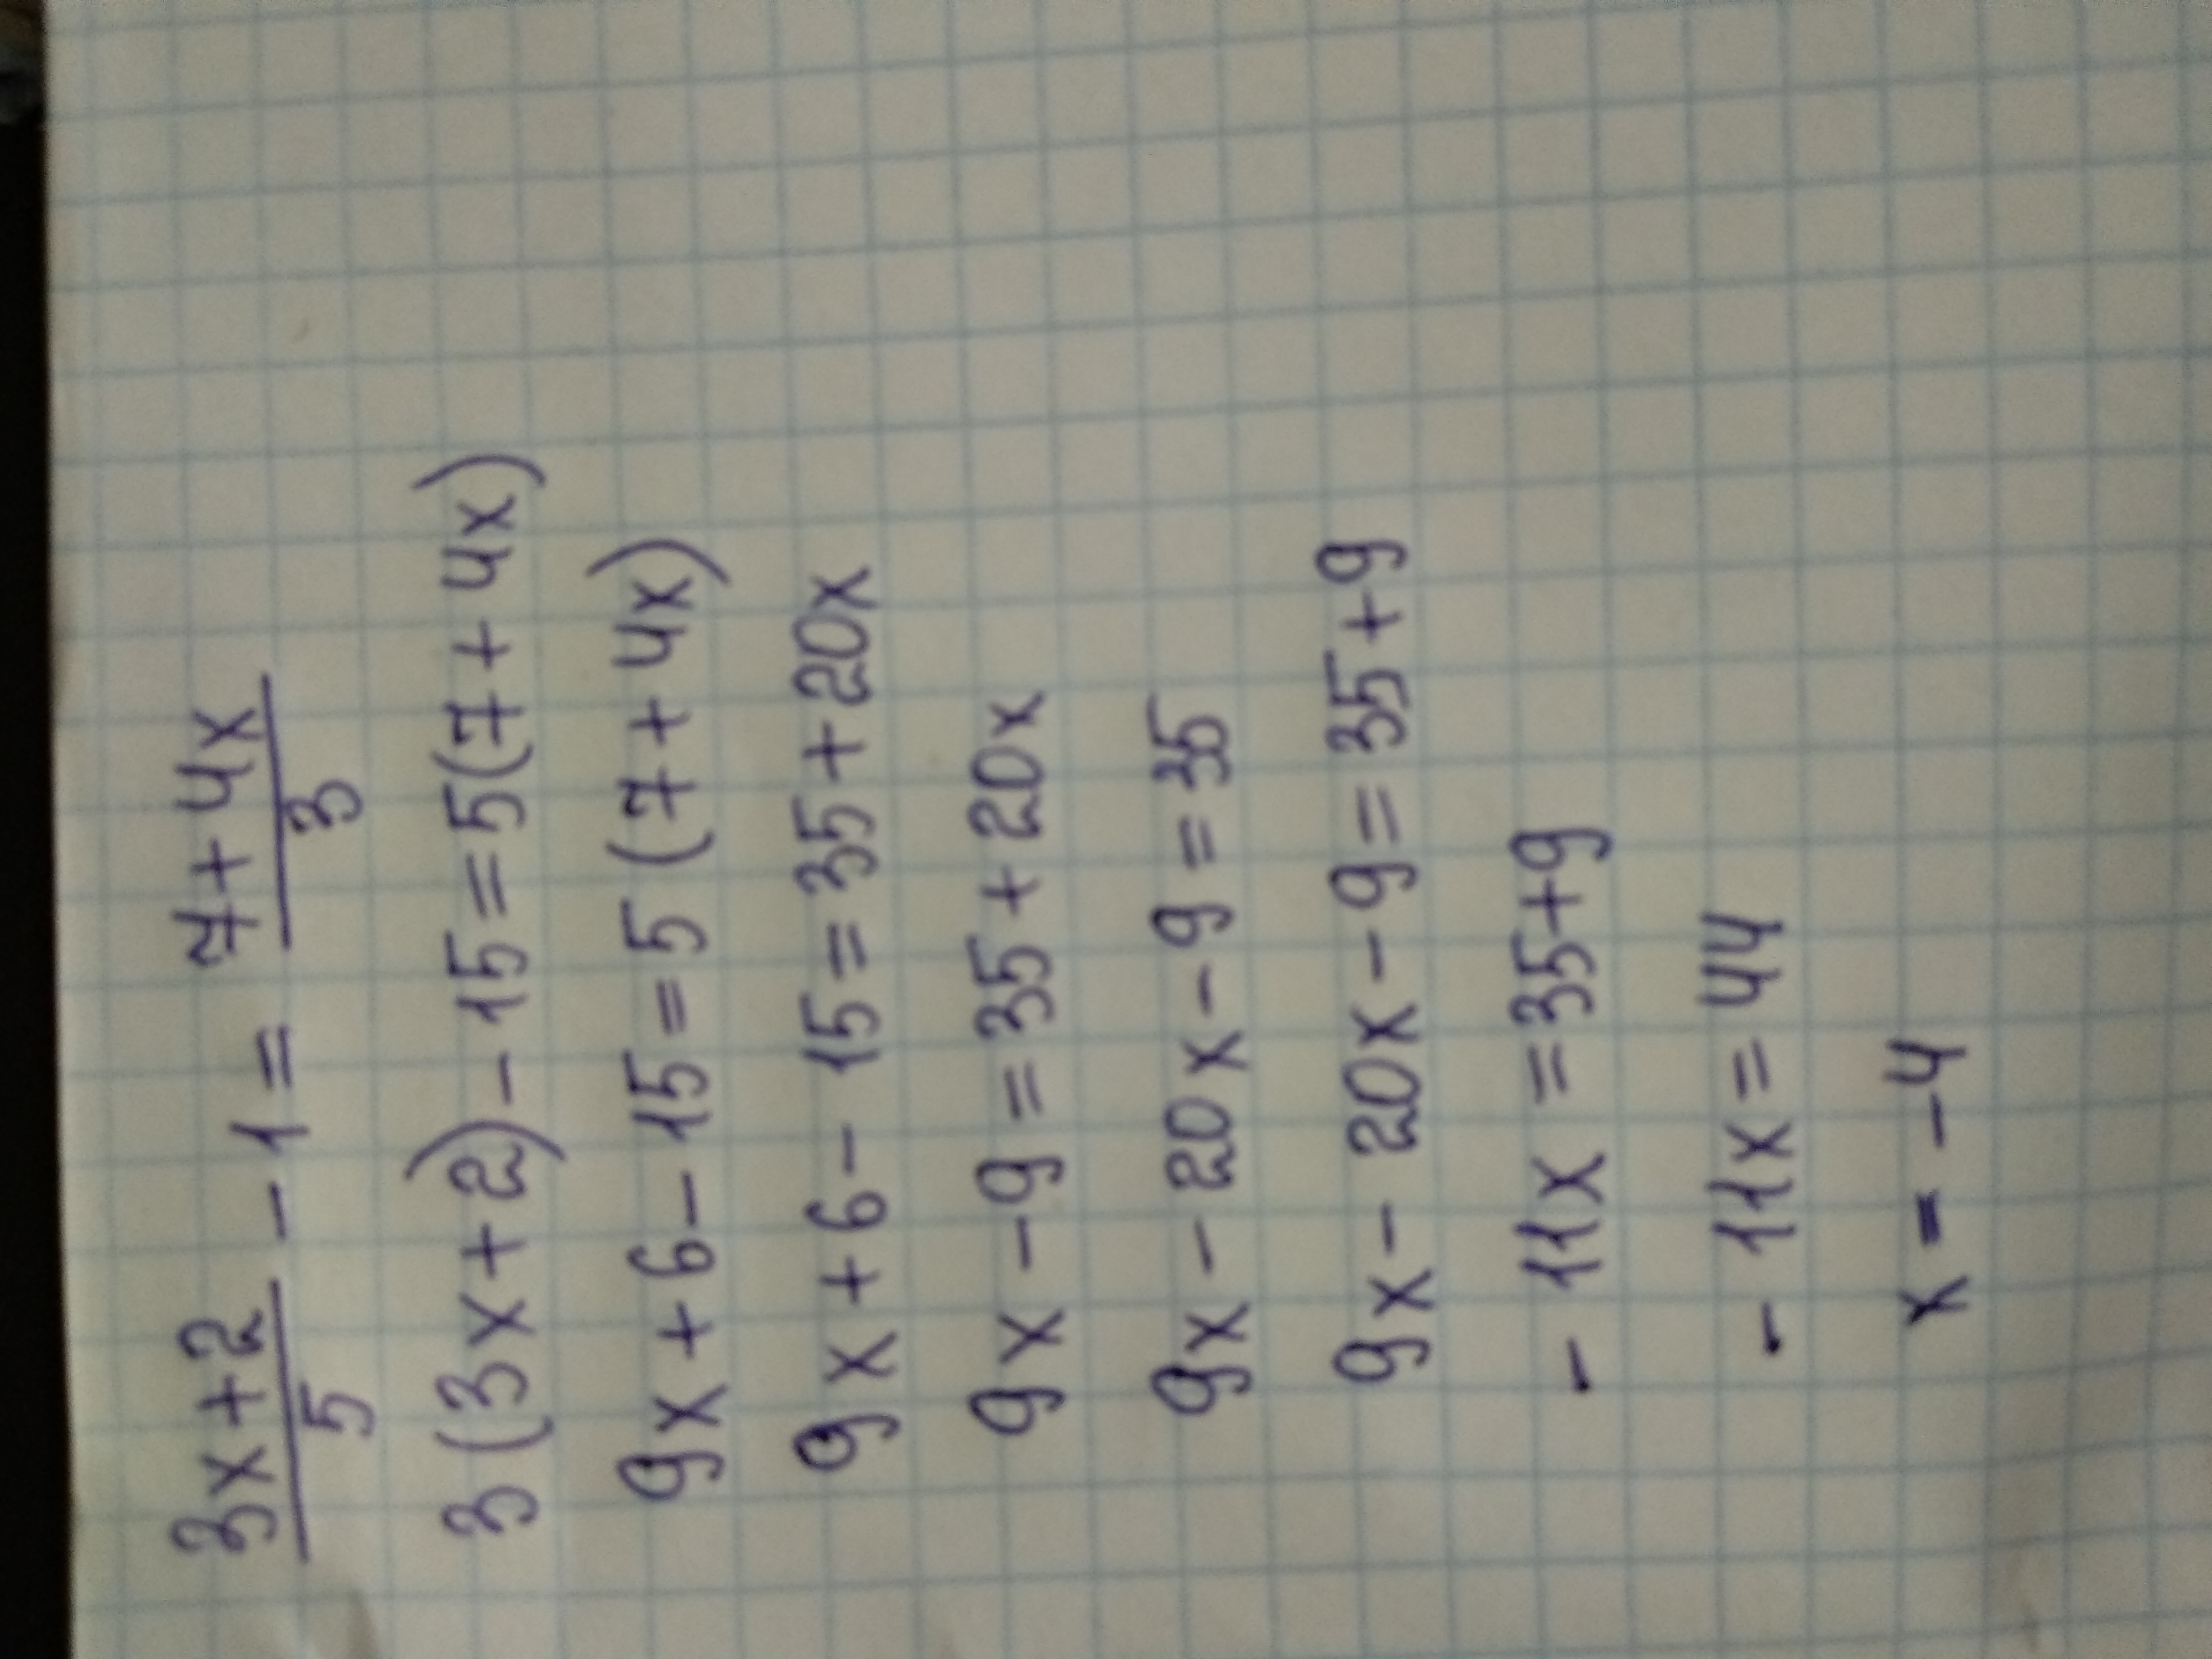 (3x+2)/5 - 1 = (7+4x)/3
3(3x+2)-15=5(7+4x)
9x+6-15=5(7+4x)
9x+6-15=35+20x
9x-9=35+20x
9x-20x-9=35
9x-20x-9=35+9
-11x=35+9
-11x=44
x=-4